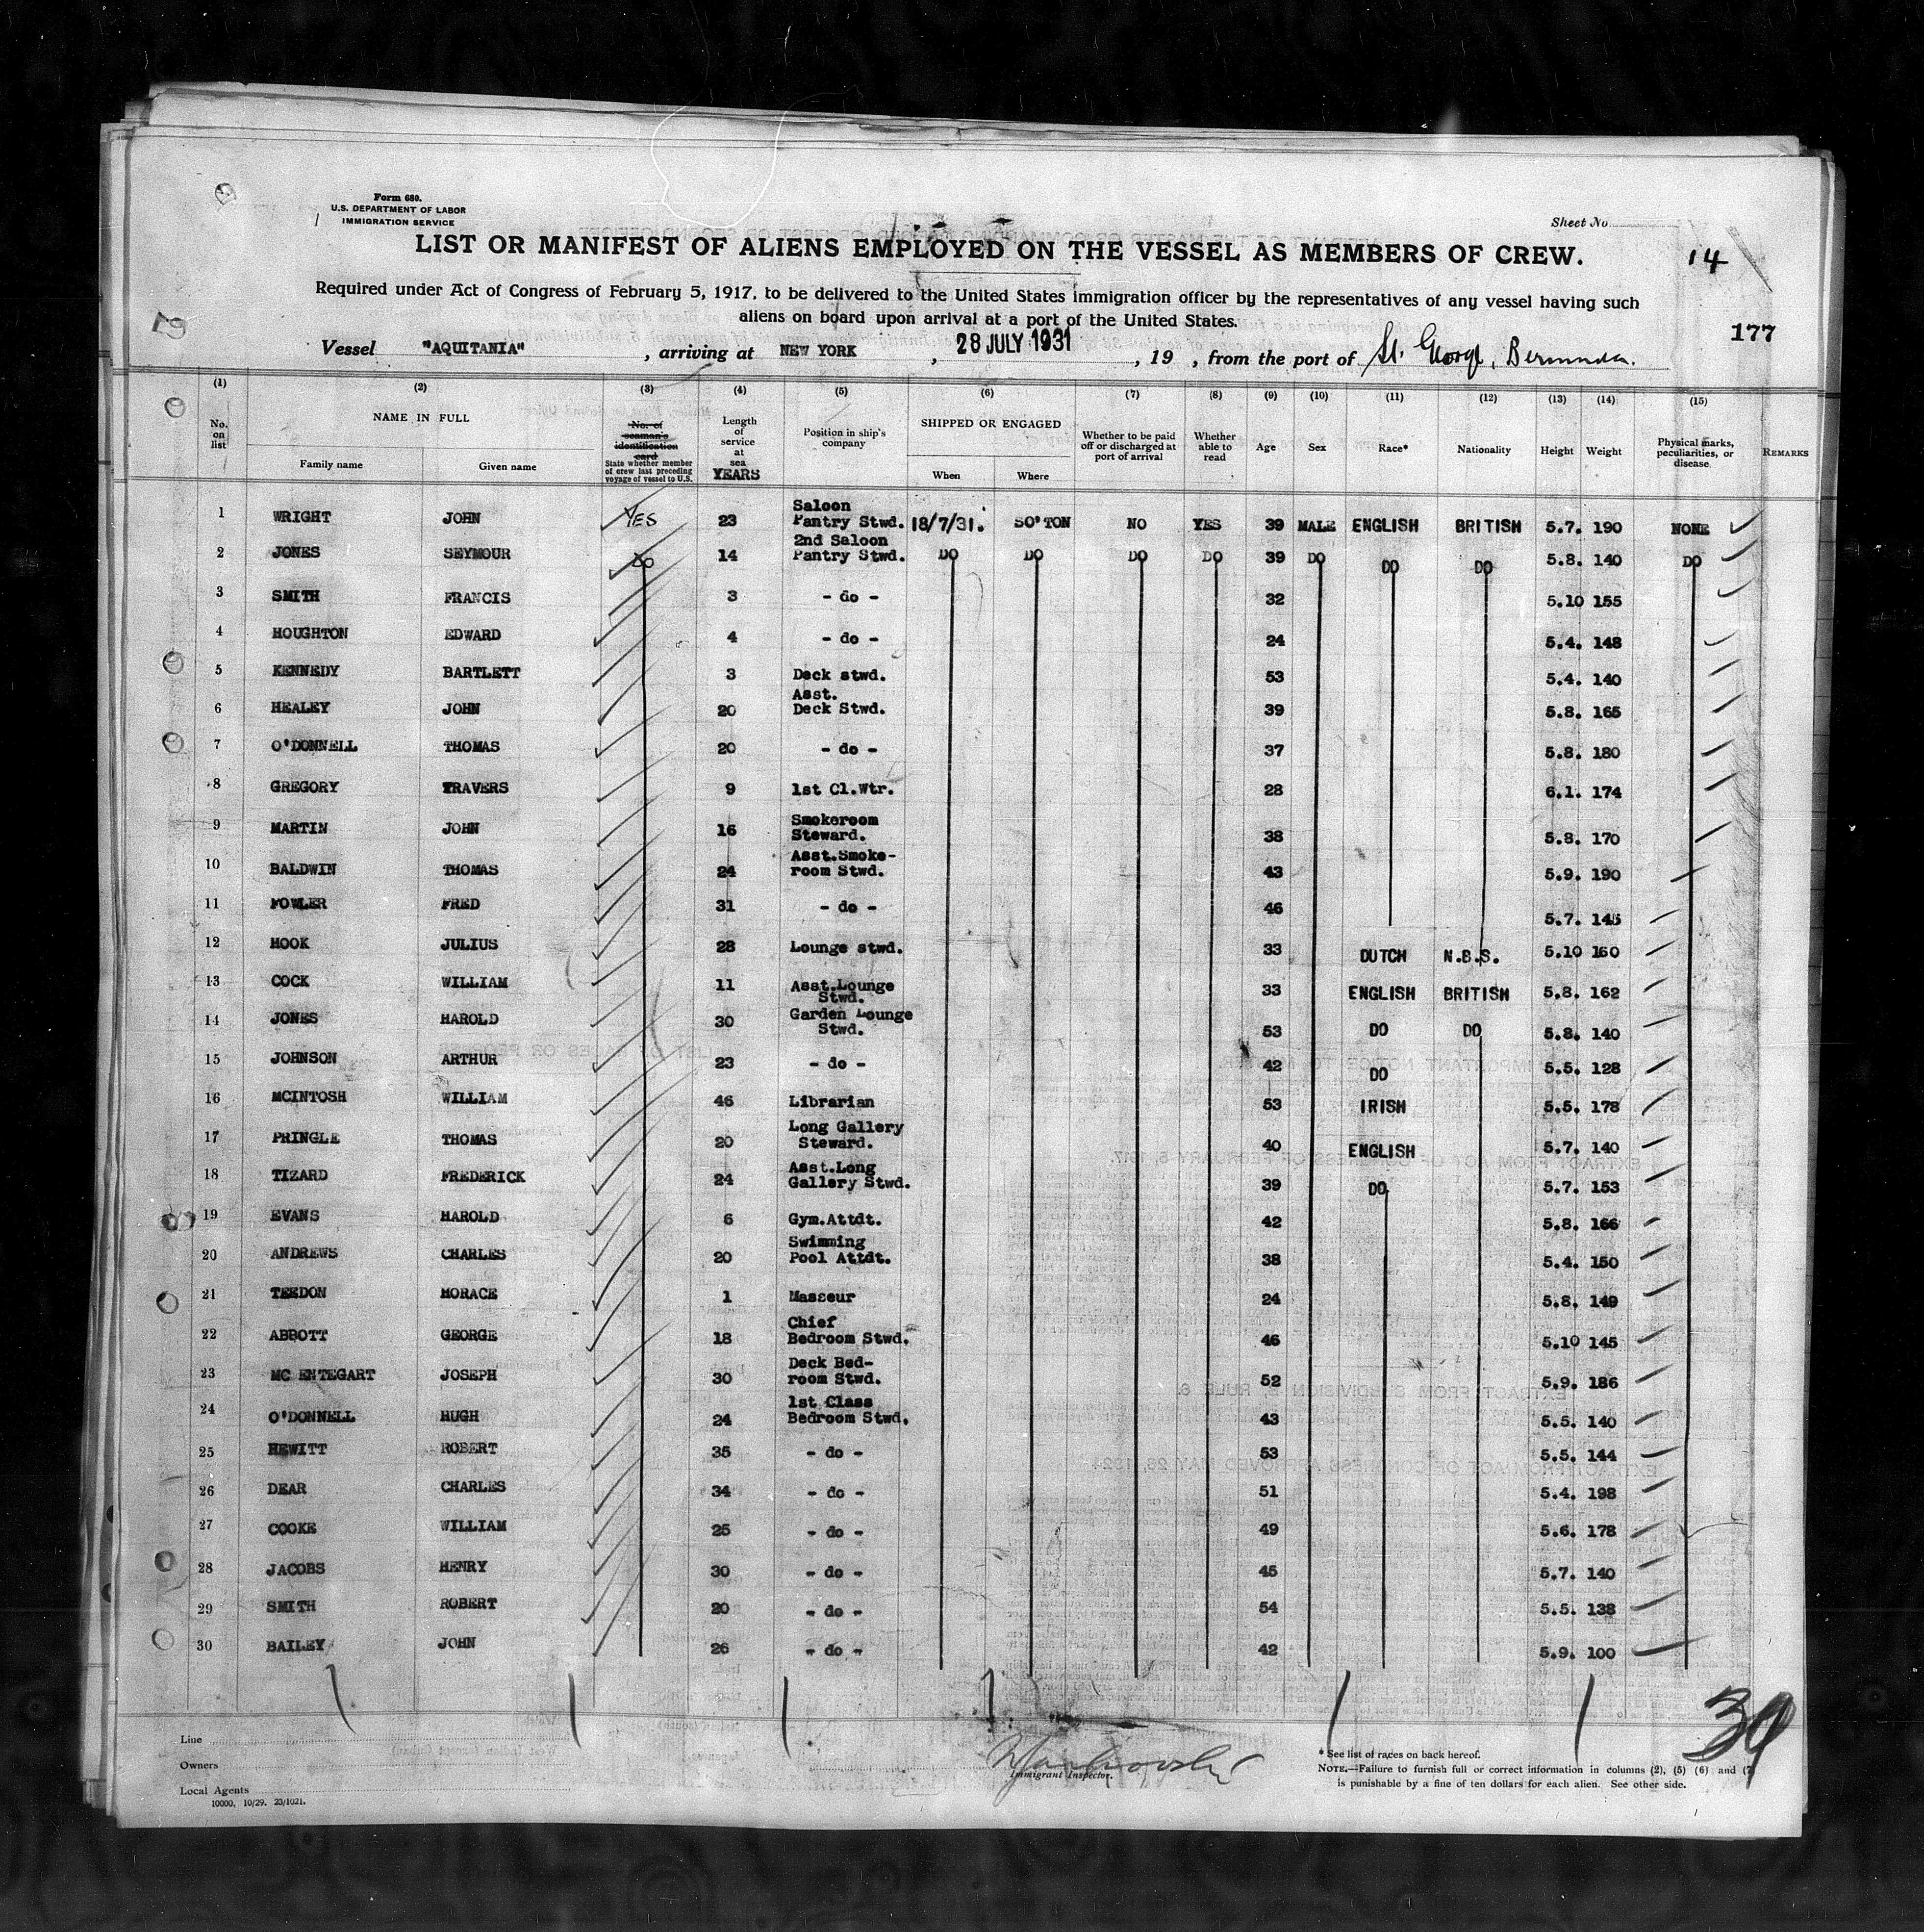 Form 680.
U.S. DEPARTMENT OF LABOR
IMMIGRATION SERVICE
Sheet No
14
LIST OR MANIFEST OF ALIENS EMPLOYED ON THE VESSEL AS MEMBERS OF CREW.
Required under Act of Congress of February 5, 1917, to be delivered to the United States immigration officer by the representatives of any vessel having such
aliens on board upon arrival at a port of the United States.
177
Vessel "AQUITANIA", arriving at NEW YORK, 28 JULY 1931, 19 , from the port of St. George, Bermuda.
(1) (2) (3) (4) (5) (6) (7) (8) (9) (10) (11) (12) (13) (14) (15)
No. on list NAME IN FULL Family name Given name No. of seaman's identification card State whether member of crew last preceding voyage of vessel to U.S. Length of service at sea YEARS Position in ship's company SHIPPED OR ENGAGED When Where Whether to be paid off or discharged at port of arrival Whether able to read Age Sex Race* Nationality Height Weight Physical marks, peculiarities, or disease REMARKS
1 WRIGHT JOHN YES 23 Saloon Pantry Stwd. 18/7/31. SO'TON NO YES 39 MALE ENGLISH BRITISH 5.7. 190 NONE
2 JONES SEYMOUR DO 14 2nd Saloon Pantry Stwd. DO DO DO DO 39 DO DO DO 5.8. 140 DO
3 SMITH FRANCIS 3 - do - 32 5.10 155
4 HOUGHTON EDWARD 4 - do - 24 5.4. 148
5 KENNEDY BARTLETT 3 Deck stwd. 53 5.4. 140
6 HEALEY JOHN 20 Asst. Deck Stwd. 39 5.8. 165
7 O'DONNELL THOMAS 20 - do - 37 5.8. 180
8 GREGORY TRAVERS 9 1st Cl.Wtr. 28 6.1. 174
9 MARTIN JOHN 16 Smokeroom Steward. 38 5.8. 170
10 BALDWIN THOMAS 24 Asst.Smoke-room Stwd. 43 5.9. 190
11 FOWLER FRED 31 - do - 46 5.7. 145
12 HOOK JULIUS 28 Lounge stwd. 33 DUTCH N.B.S. 5.10 160
13 COCK WILLIAM 11 Asst.Lounge Stwd. 33 ENGLISH BRITISH 5.8. 162
14 JONES HAROLD 30 Garden Lounge Stwd. 53 DO DO 5.8. 140
15 JOHNSON ARTHUR 23 - do - 42 DO 5.5. 128
16 MCINTOSH WILLIAM 46 Librarian 53 IRISH 5.5. 178
17 PRINGLE THOMAS 20 Long Gallery Steward. 40 ENGLISH 5.7. 140
18 TIZARD FREDERICK 24 Asst.Long Gallery Stwd. 39 DO 5.7. 153
19 EVANS HAROLD 6 Gym.Attdt. 42 5.8. 166
20 ANDREWS CHARLES 20 Swimming Pool Attdt. 38 5.4. 150
21 TEEDON HORACE 1 Masseur 24 5.8. 149
22 ABBOTT GEORGE 18 Chief Bedroom Stwd. 46 5.10 145
23 MC ENTEGART JOSEPH 30 Deck Bed-room Stwd. 52 5.9. 186
24 O'DONNELL HUGH 24 1st Class Bedroom Stwd. 43 5.5. 140
25 HEWITT ROBERT 35 - do - 53 5.5. 144
26 DEAR CHARLES 34 - do - 51 5.4. 198
27 COOKE WILLIAM 25 - do - 49 5.6. 178
28 JACOBS HENRY 30 - do - 45 5.7. 140
29 SMITH ROBERT 20 - do - 54 5.5. 138
30 BAILEY JOHN 26 - do - 42 5.9. 100
30
Line
Owners
Local Agents
10000, 10/29. 23/1021.
Immigrant Inspector.
* See list of races on back hereof.
NOTE.—Failure to furnish full or correct information in columns (2), (5) (6) and (7)
is punishable by a fine of ten dollars for each alien. See other side.